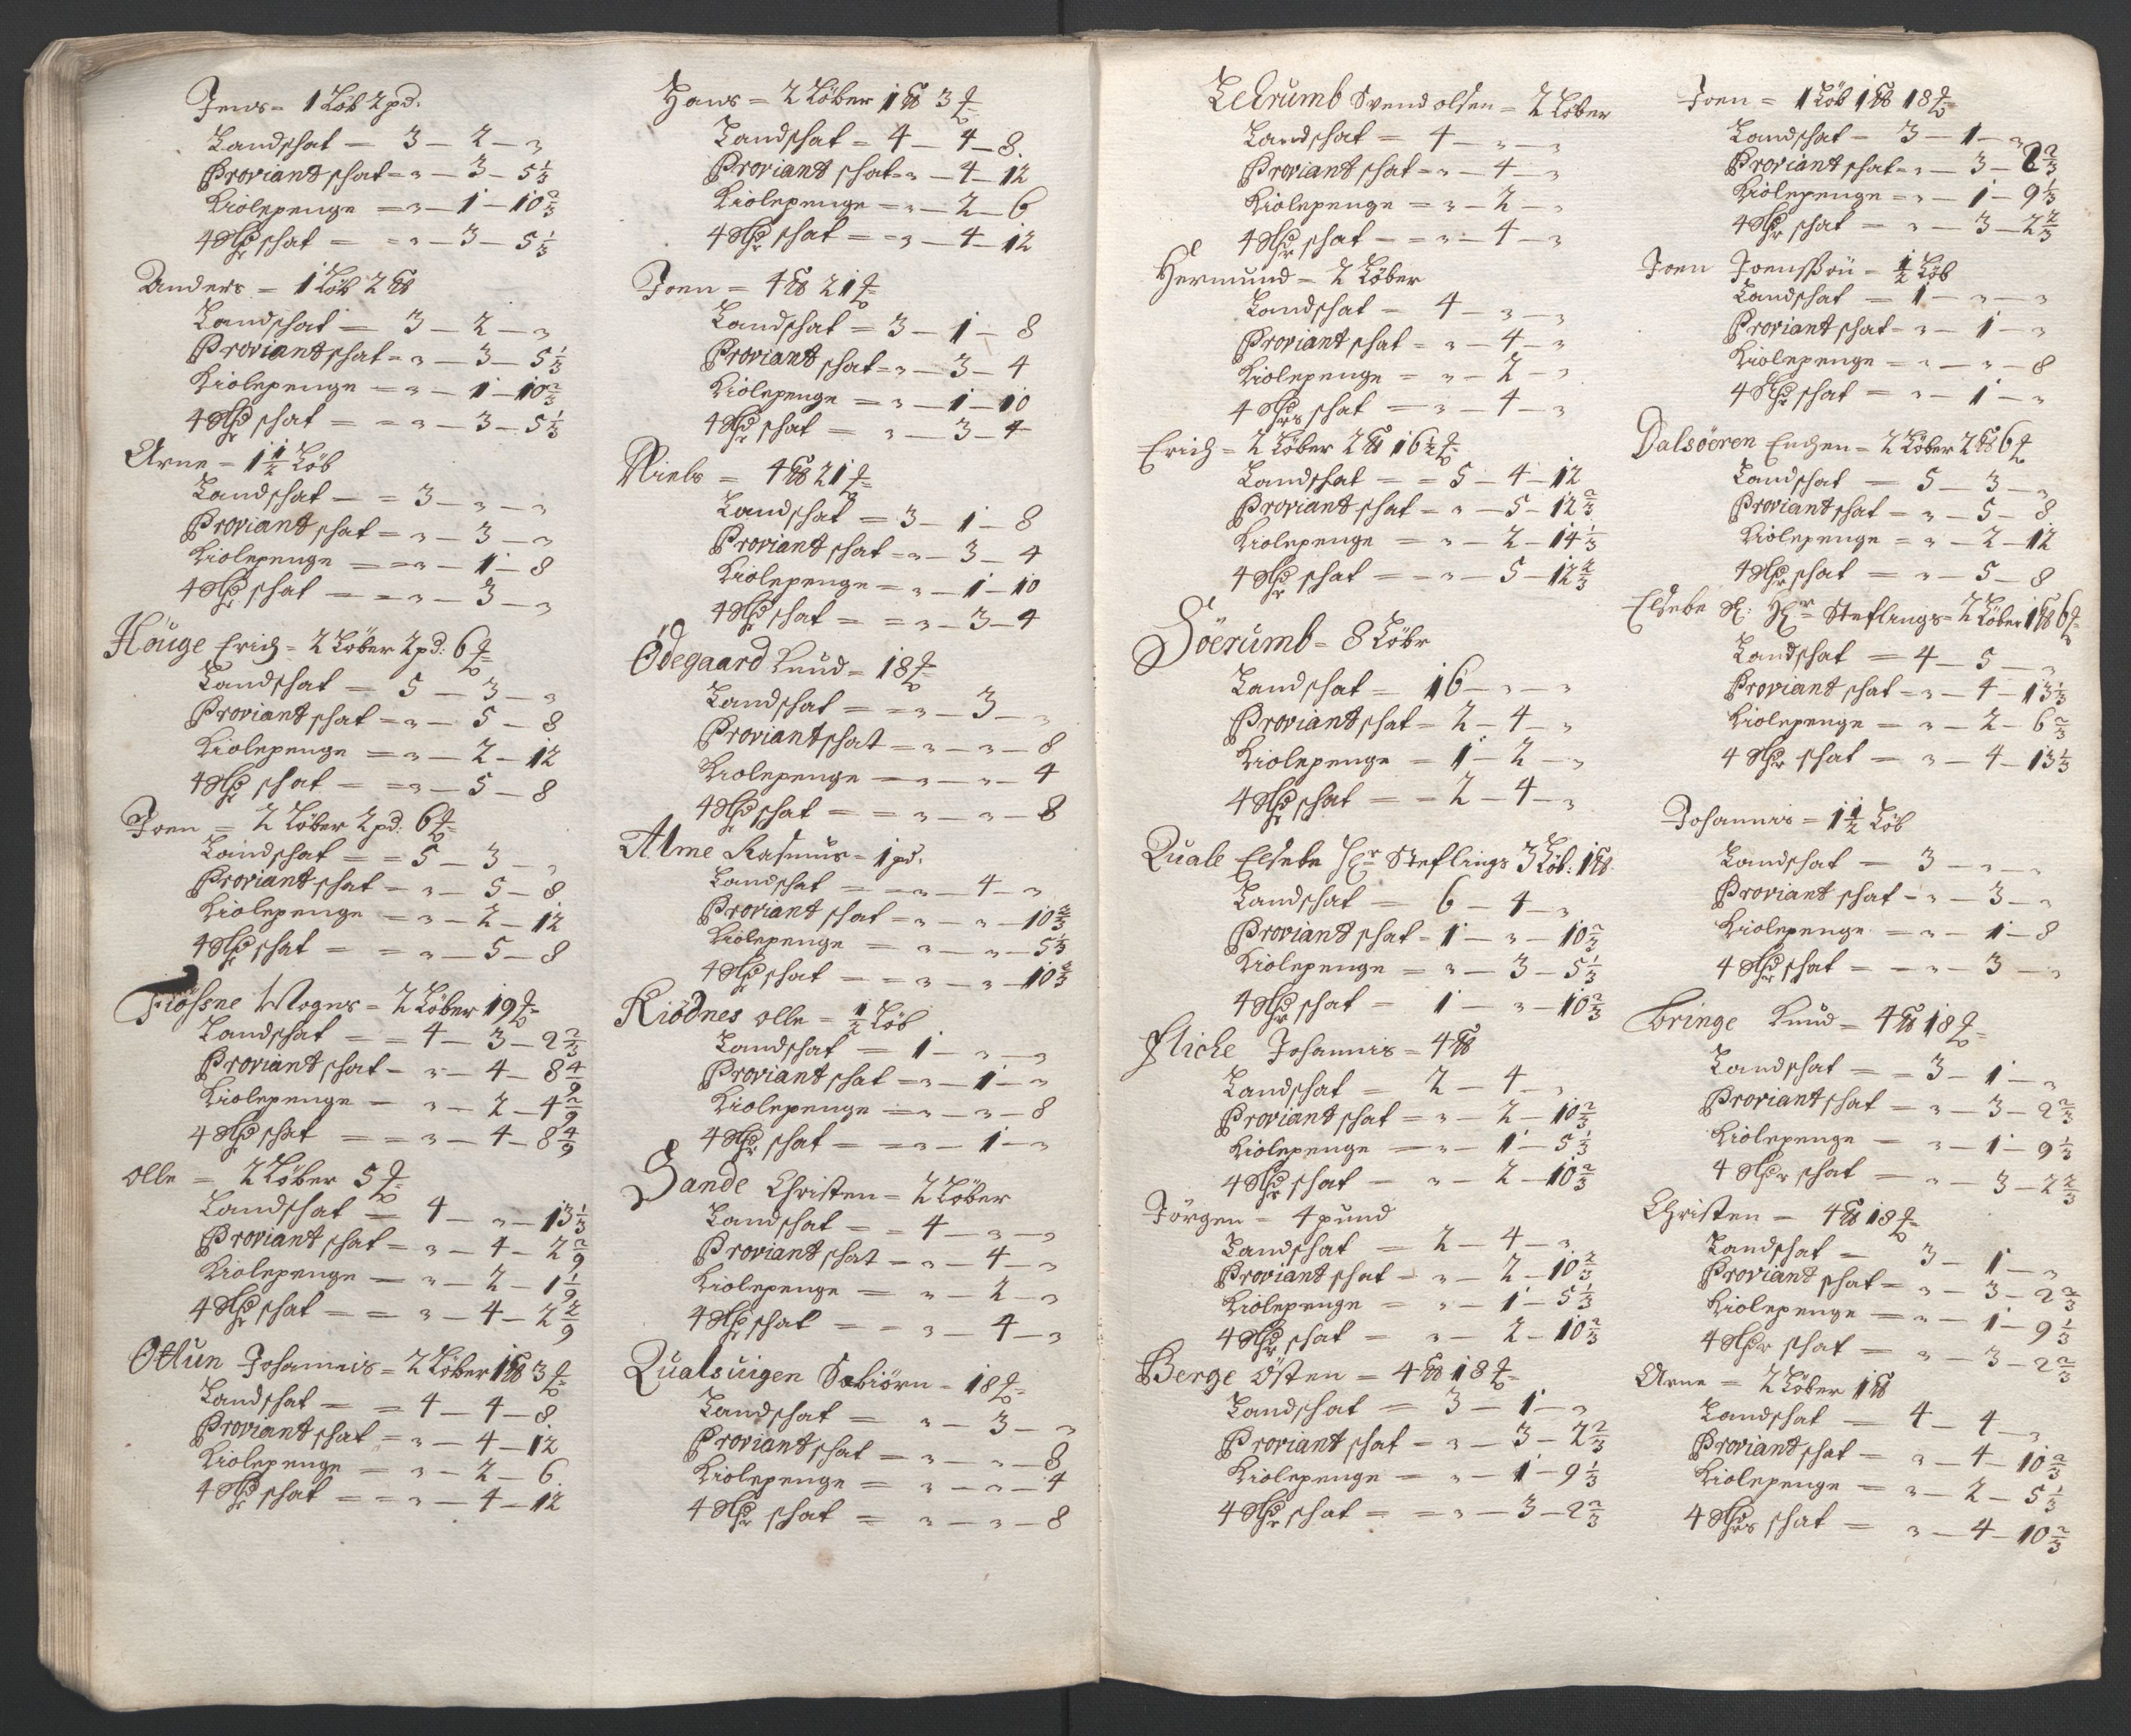 Jens = 1 Löb 2 pd:
Landschat = 3 – 2 – „
Proviantschat = „ – 3 – 5 1/3
Kiolepenge = „ – 1 – 10 2/3
4 Rdr schat = = „ – 3 – 5 1/3
Anders = 1 Löb 2 pd
Landschat = 3 – 2 – „
Proviantschat = „ – 3 – 5 1/3
Kiolepenge = „ – 1 – 10 2/3
4 Rdr schat = = „ – 3 – 5 1/3
Arne = 1 1/2 Löb
Landschat – = 3 – „ – „
Proviantschat = „ – 3 – „
Kiolepenge = = „ – 1 – 8
4 Rdr schat = = „ – 3 – „
Houge Erich = 2 Löber 2 pd: 6 £
Landschat = 5 – 3 – „
Proviantschat = „ – 5 – 8
Kiolepenge = „ – 2 – 12
4 Rdr schat = = „ – 5 – 8
Joen = 2 Löber 2 pd: 6 £
Landschat = = 5 – 3 – „
Proviantschat = „ – 5 – 8
Kiolepenge = „ – 2 – 12
4 Rdr schat = = „ – 5 – 8
Fiösne Mogns = 2 Löber 19 £
Landschat = = 4 – 3 – 2 2/3
Proviantschat – „ – 4 – 8 4/9
Kiolepenge – „ – 2 – 4 2/9
4 Rdr schat = = „ – 4 – 8 4/9
Olle = 2 Löber 5 £
Landschat = 4 – „ – 13 1/3
Proviantschat = „ – 4 – 2 2/9
Kiolepenge = „ – 2 – 1 1/9
4 Rdr schat = = „ – 4 – 2 2/9
Ottun Johannis = 2 Löber 1 pd 3 £
Landschat = = 4 – 4 – 8
Proviantschat = „ – 4 – 12
Kiolepenge = „ – 2 – 6
4 Rdr schat = = „ – 4 – 12
Hans = 2 Löber 1 pd 3 £
Landschat = 4 – 4 – 8
Proviantschat = „ – 4 – 12
Kiolepenge = „ – 2 – 6
4 Rdr schat = = „ – 4 – 12
Joen = 4 pd 21 £
Landschat = 3 – 1 – 8
Proviantschat = „ – 3 – 4
Kiolepenge = „ – 1 – 10
4 Rdr schat = „ – 3 – 4
Niels = 4 pd 21 £
Landschat = 3 – 1 – 8
Proviantschat = „ – 3 – 4
Kiolepenge = „ – 1 – 10
4 Rdr schat = = „ – 3 – 4
Ödegaard Knud = 18 £
Landschat = = „ – 3 – „
Proviantschat = „ – „ – 8
Kiolepenge = „ – „ – 4
4 Rdr schat = = „ – „ – 8
Alme Rasmus = 1 pd:
Landschat = = „ – 4 – „
Proviantschat = „ – „ – 10 2/3
Kiolepenge = „ – „ – 5 1/3
4 Rdr schat = = „ – „ – 10 2/3
Kiödnes Olle = 1/2 Löb
Landschat = 1 – „ – „
Proviantschat = „ – 1 – „
Kiolepenge = „ – „ – 8
4 Rdr schat = = „ – 1 – „
Sande Christen = 2 Löber
Landschat = = 4 – „ – „
Proviantschat = „ – 4 – „
Kiolepenge = „ – 2 – „
4 Rdr schat = = „ – 4 – „
Qualsuigen Sebiörn = 18 £
Landschat = „ – 3 – „
Proviantschat = „ – „ – 8
Kiolepenge = „ – „ – 4
4 Rdr schat = „ – „ – 8
Lekrumb Svend olsen = 2 Löber
Landschat = 4 – „ – „
Proviantschat = „ – 4 – „
Kiolepenge = „ – 2 – „
4 Rdr schat = = „ – 4 – „
Hermund = 2 Löber
Landschat = 4 – „ – „
Proviantschat = „ – 4 – „
Kiolepenge = „ – 2 – „
4 Rdrs schat = „ – 4 – „
Erich = 2 Löber 2 pd 16 1/2 £
Landschat = = 5 – 4 – 12
Proviantschat = „ – 5 – 12 2/3
Kiolepenge = „ – 2 – 14 1/3
4 Rdr schat = = „ – 5 – 12 2/3
Söerumb = 8 Löbr
Landschat = 16 – „ – „
Proviantschat = 2 – 4 – „
Kiolepenge = 1 – 2 – „
4 Rdr schat = = 2 – 4 – „
Quale Elsebe Hr Steflings 3 Löb: 1 pd
Landschat = 6 – 4 – „
Proviantschat = 1 – „ – 10 2/3
Kiolepenge = „ – 3 – 5 1/3
4 Rdr schat = 1 – „ – 10 2/3
Fliche Johannis = 4 pd
Landschat = 2 – 4 – „
Proviantschat = „ – 2 – 10 2/3
Kiolepenge = „ – 1 – 5 1/3
4 Rdr schat = „ – 2 – 10 2/3
Jörgen = 4 pund
Landschat = 2 – 4 – „
Proviantschat = „ – 2 – 10 2/3
Kiolepenge = „ – 1 – 5 1/3
4 Rdr schat = „ – 2 – 10 2/3
Berge Östen = 4 pd 18 £
Landschat = 3 – 1 – „
Proviantschat = „ – 3 – 2 2/3
Kiolepenge = „ – 1 – 9 1/3
4 Rdr schat = = „ – 3 – 2 2/3
Joen = 1 Löb 1 pd 18 £
Landschat = 3 – 1 – „
Proviantschat = „ – 3 – 2 2/3
Kiolepenge = „ – 1 – 9 1/3
4 Rdr schat = „ – 3 – 2 2/3
Joen Joenssøn = 1/2 Löb
Landschat = 1 – „ – „
Proviantschat = „ – 1 – „
Kiolepenge = „ – „ – 8
4 Rdr schat = „ – 1 – „
Dalsöeren Enchen = 2 Löber 2 pd 6 £
Landschat = 5 – 3 – „
Proviantschat = „ – 5 – 8
Kiolepenge = „ – 2 – 12
4 Rdr schat = „ – 5 – 8
Elsebe Sl: Hr Steflings = 2 Löber 1 pd 6 £
Landschat = 4 – 5 – „
Proviantschat = „ – 4 – 13 1/3
Kiolepenge = „ – 2 – 6 2/3
4 Rdr schat = „ – 4 – 13 1/3
Johannis = 1 1/2 Löb
Landschat = 3 – „ – „
Proviantschat = „ – 3 – „
Kiolepenge = „ – 1 – 8
4 Rdr schat = = „ – 3 – „
Bringe Knud = 4 pd 18 £
Landschat = = 3 – 1 – „
Proviantschat = „ – 3 – 2 2/3
Kiolepenge = „ – 1 – 9 1/3
4 Rdr schat = „ – 3 – 2 2/3
Christen = 4 pd 18 £
Landschat = 3 – 1 – „
Proviantschat = „ – 3 – 2 2/3
Kiolepenge = „ – 1 – 9 1/3
4 Rdr schat = „ – 3 – 2 2/3
Arne = 2 Löber 1 pd
Landschat = 4 – 4 – „
Proviantschat = „ – 4 – 10 2/3
Kiolepenge = „ – 2 – 5 1/3
4 Rdrs schat = „ – 4 – 10 2/3